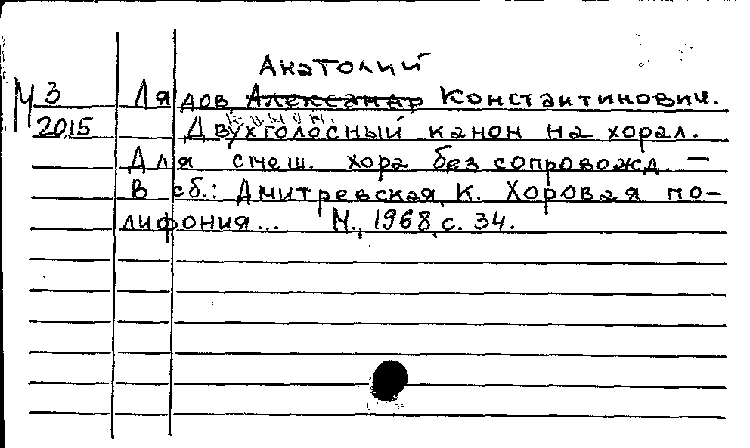 Анатолий
М 3 Лядов ~~Александр~~ Константинович.
2015 Двухголосный канон на хорал.
Для смеш. хора без сопровожд. —
В сб.: Дмитревская, К. Хоровая по-
лифония... М., 1968, с. 34.